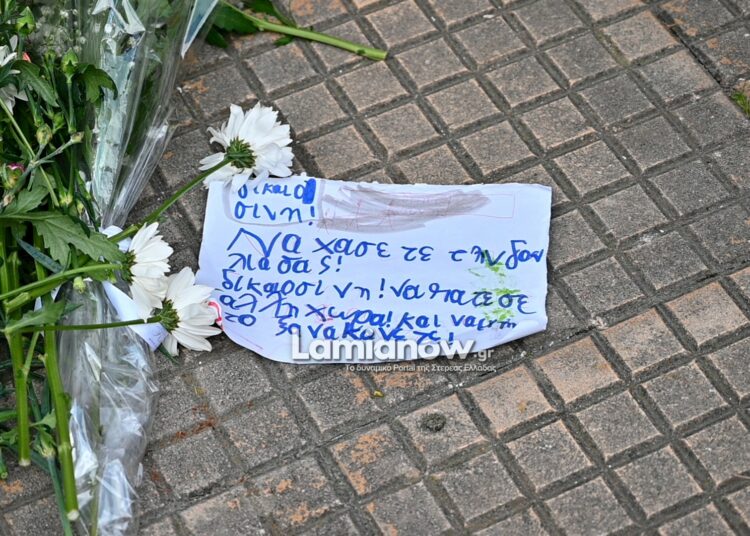 δικαιο
σινη!
Να χασε τε τηνδου
λιασας!
δικαρσι νη! ναπατεσε
αλ λη χωρα! και να μην
το ξανακανετε!
Lamianow.gr
Το δυναμικό Portal της Στερεας Ελλάδας